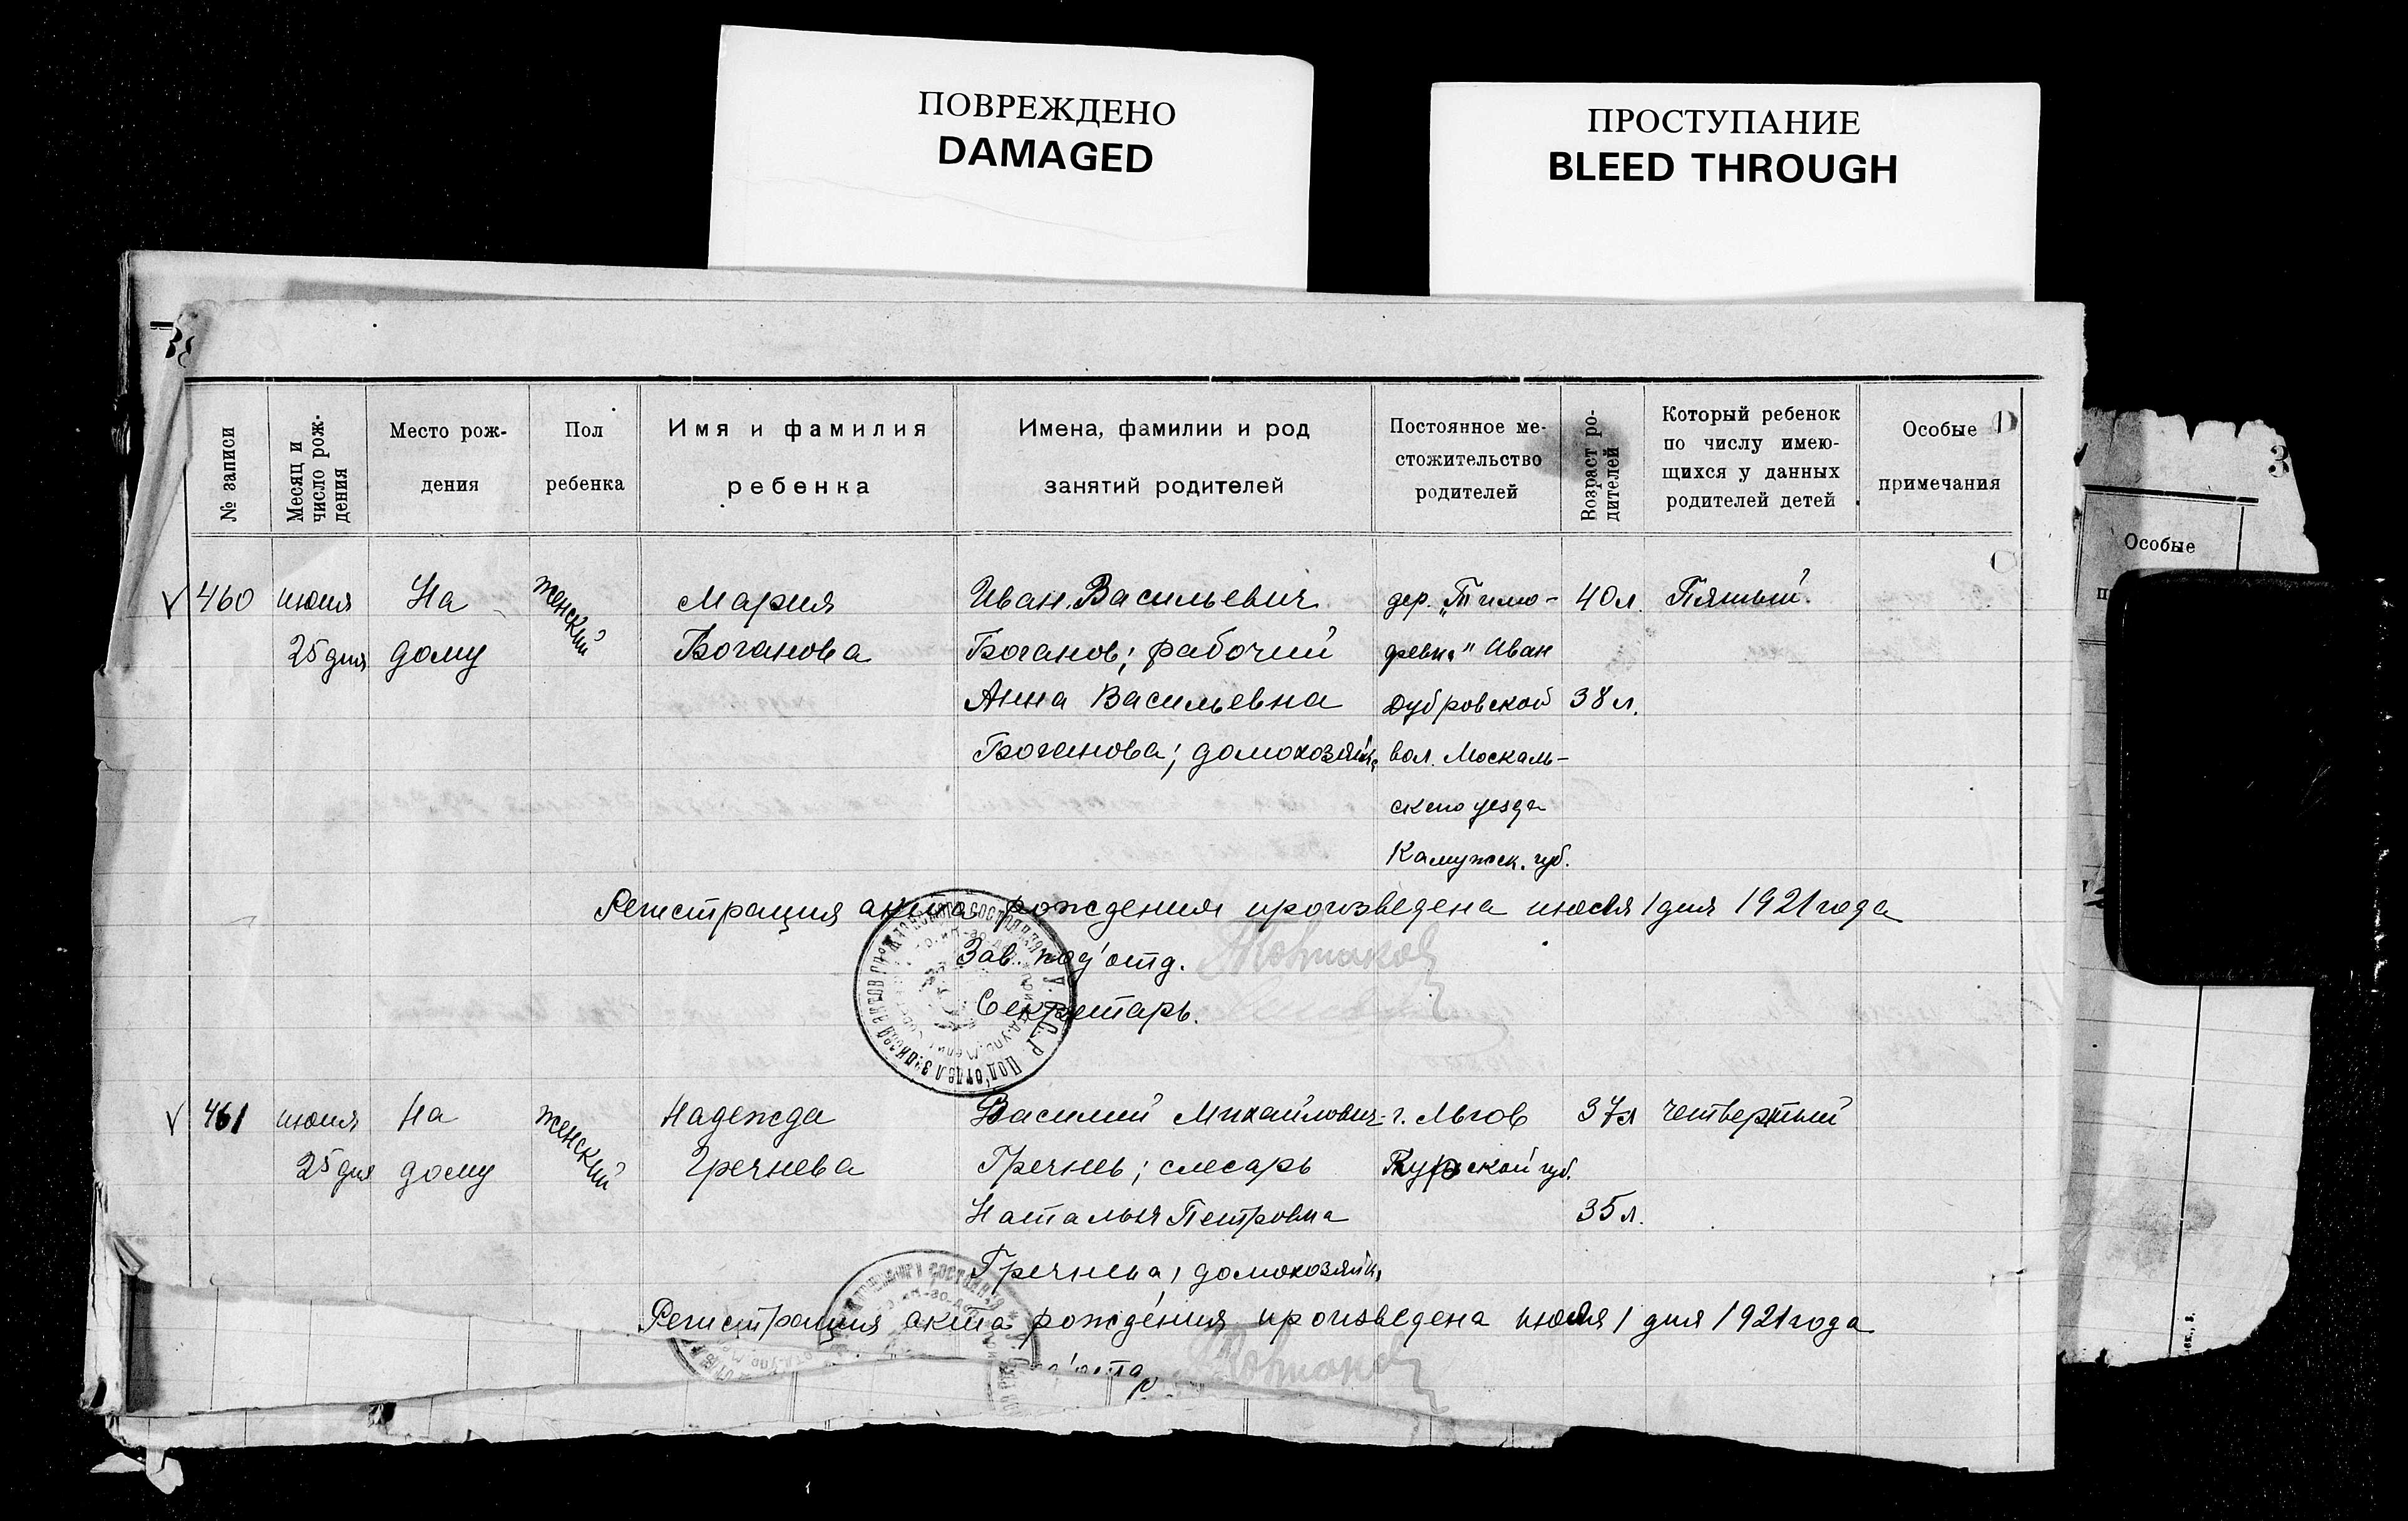 ПОВРЕЖДЕНО
DAMAGED
ПРОСТУПАНИЕ
BLEED THROUGH
3
№ записи
Месяц и
число рож-
дения
Место рож-
дения
Пол
ребенка
Имя и фамилия
ребенка
Имена, фамилии и род
занятий родителей
Постоянное ме-
стожительство
родителей
Возраст ро-
дителей
Который ребенок
по числу имею-
щихся у данных
родителей детей
Особые
примечания
Особые
460 июня На женский Мария Иван Васильевич дер. 40л. Пятый.
25 дня дому Боганова Боганов; рабочий Иван
Анна Васильевна Дубровской 38 л.
Боганова; домохозяйк. вол. Москаль-
ского уезда
Калужск. губ.
Регистрация акта рождения произведена июля 1 дня 1921 года
Зав. под'отд.
Секретарь.
461 июня На женский Надежда Василий Михайлович г. Льгов 37л четвертый
25 дня дому Гречнева Гречнев; слесарь Курской губ.
Наталья Петровна 35 л.
Гречнева, домохозяйк.
Регистрация акта рождения произведена июля 1 дня 1921 года